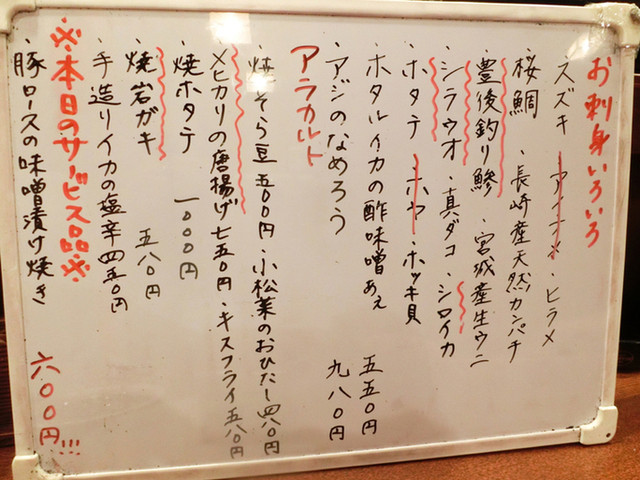 お刺身いろいろ
スズキ・アイナメ・ヒラメ
桜鯛・長崎産天然カンパチ
豊後釣り鯵・宮城産生ウニ
・シラウオ・真ダコ・シロイカ
・ホタテ・ホヤ・ホッキ貝
・ホタルイカの酢味噌あえ 五五〇円
・アジのなめろう 九八〇円
アラカルト
・焼そら豆五〇〇円・小松菜のおひたし四八〇円
・メヒカリの唐揚げ七五〇円・キスフライ五八〇円
・焼ホタテ 一〇〇〇円
・焼岩ガキ 五八〇円
・手造りイカの塩辛四五〇円
※本日のサービス品※
豚ロースの味噌漬け焼き 六〇〇円!!!